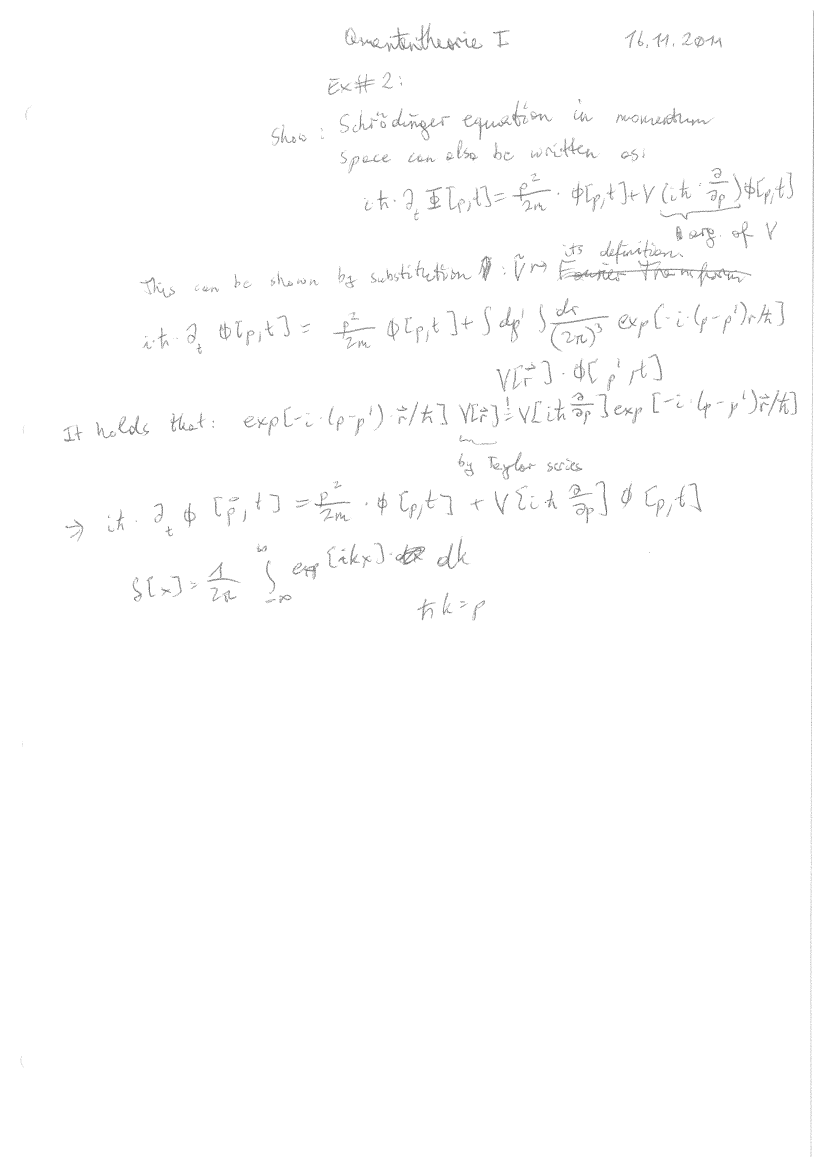 Quantentheorie I 16.11.2011
Ex# 2:
Show: Schrödinger equation in momentum
space can also be written as:
iħ·∂_t Φ[p,t] = p²/2m · Φ[p,t] + V (iħ·∂/∂p) Φ[p,t]
arg. of V
its definition.
This can be shown by substitution : Ṽ ↦ Fourier Transform
i·ħ·∂_t Φ[p,t] = p²/2m Φ[p,t] + ∫dp' ∫ dr/(2π)³ exp[-i·(p-p')r/ħ]
V[r⃗]·Φ[p',t]
It holds that: exp[-i·(p-p')·r⃗/ħ] V[r⃗] =! V[iħ ∂/∂p] exp[-i·(p-p')r⃗/ħ]
by Taylor series
⇒ iħ·∂_t Φ[p⃗,t] = p²/2m · Φ[p,t] + V[iħ ∂/∂p] Φ[p,t]
δ[x] = 1/2π ∫_{-∞}^{∞} exp[ikx] dk
ħk = p